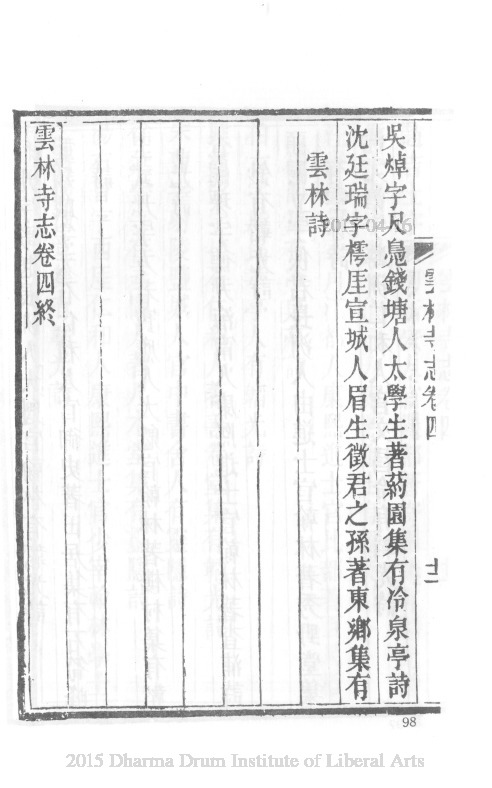 吳焯字尺鳧錢塘人太學生著葯園集有冷泉亭詩
沈廷瑞字樗厓宣城人眉生徵君之孫著東鄉集有
雲林詩
雲林寺志卷四終
雲林寺志卷四
十二
98
2015 Dharma Drum Institute of Liberal Arts